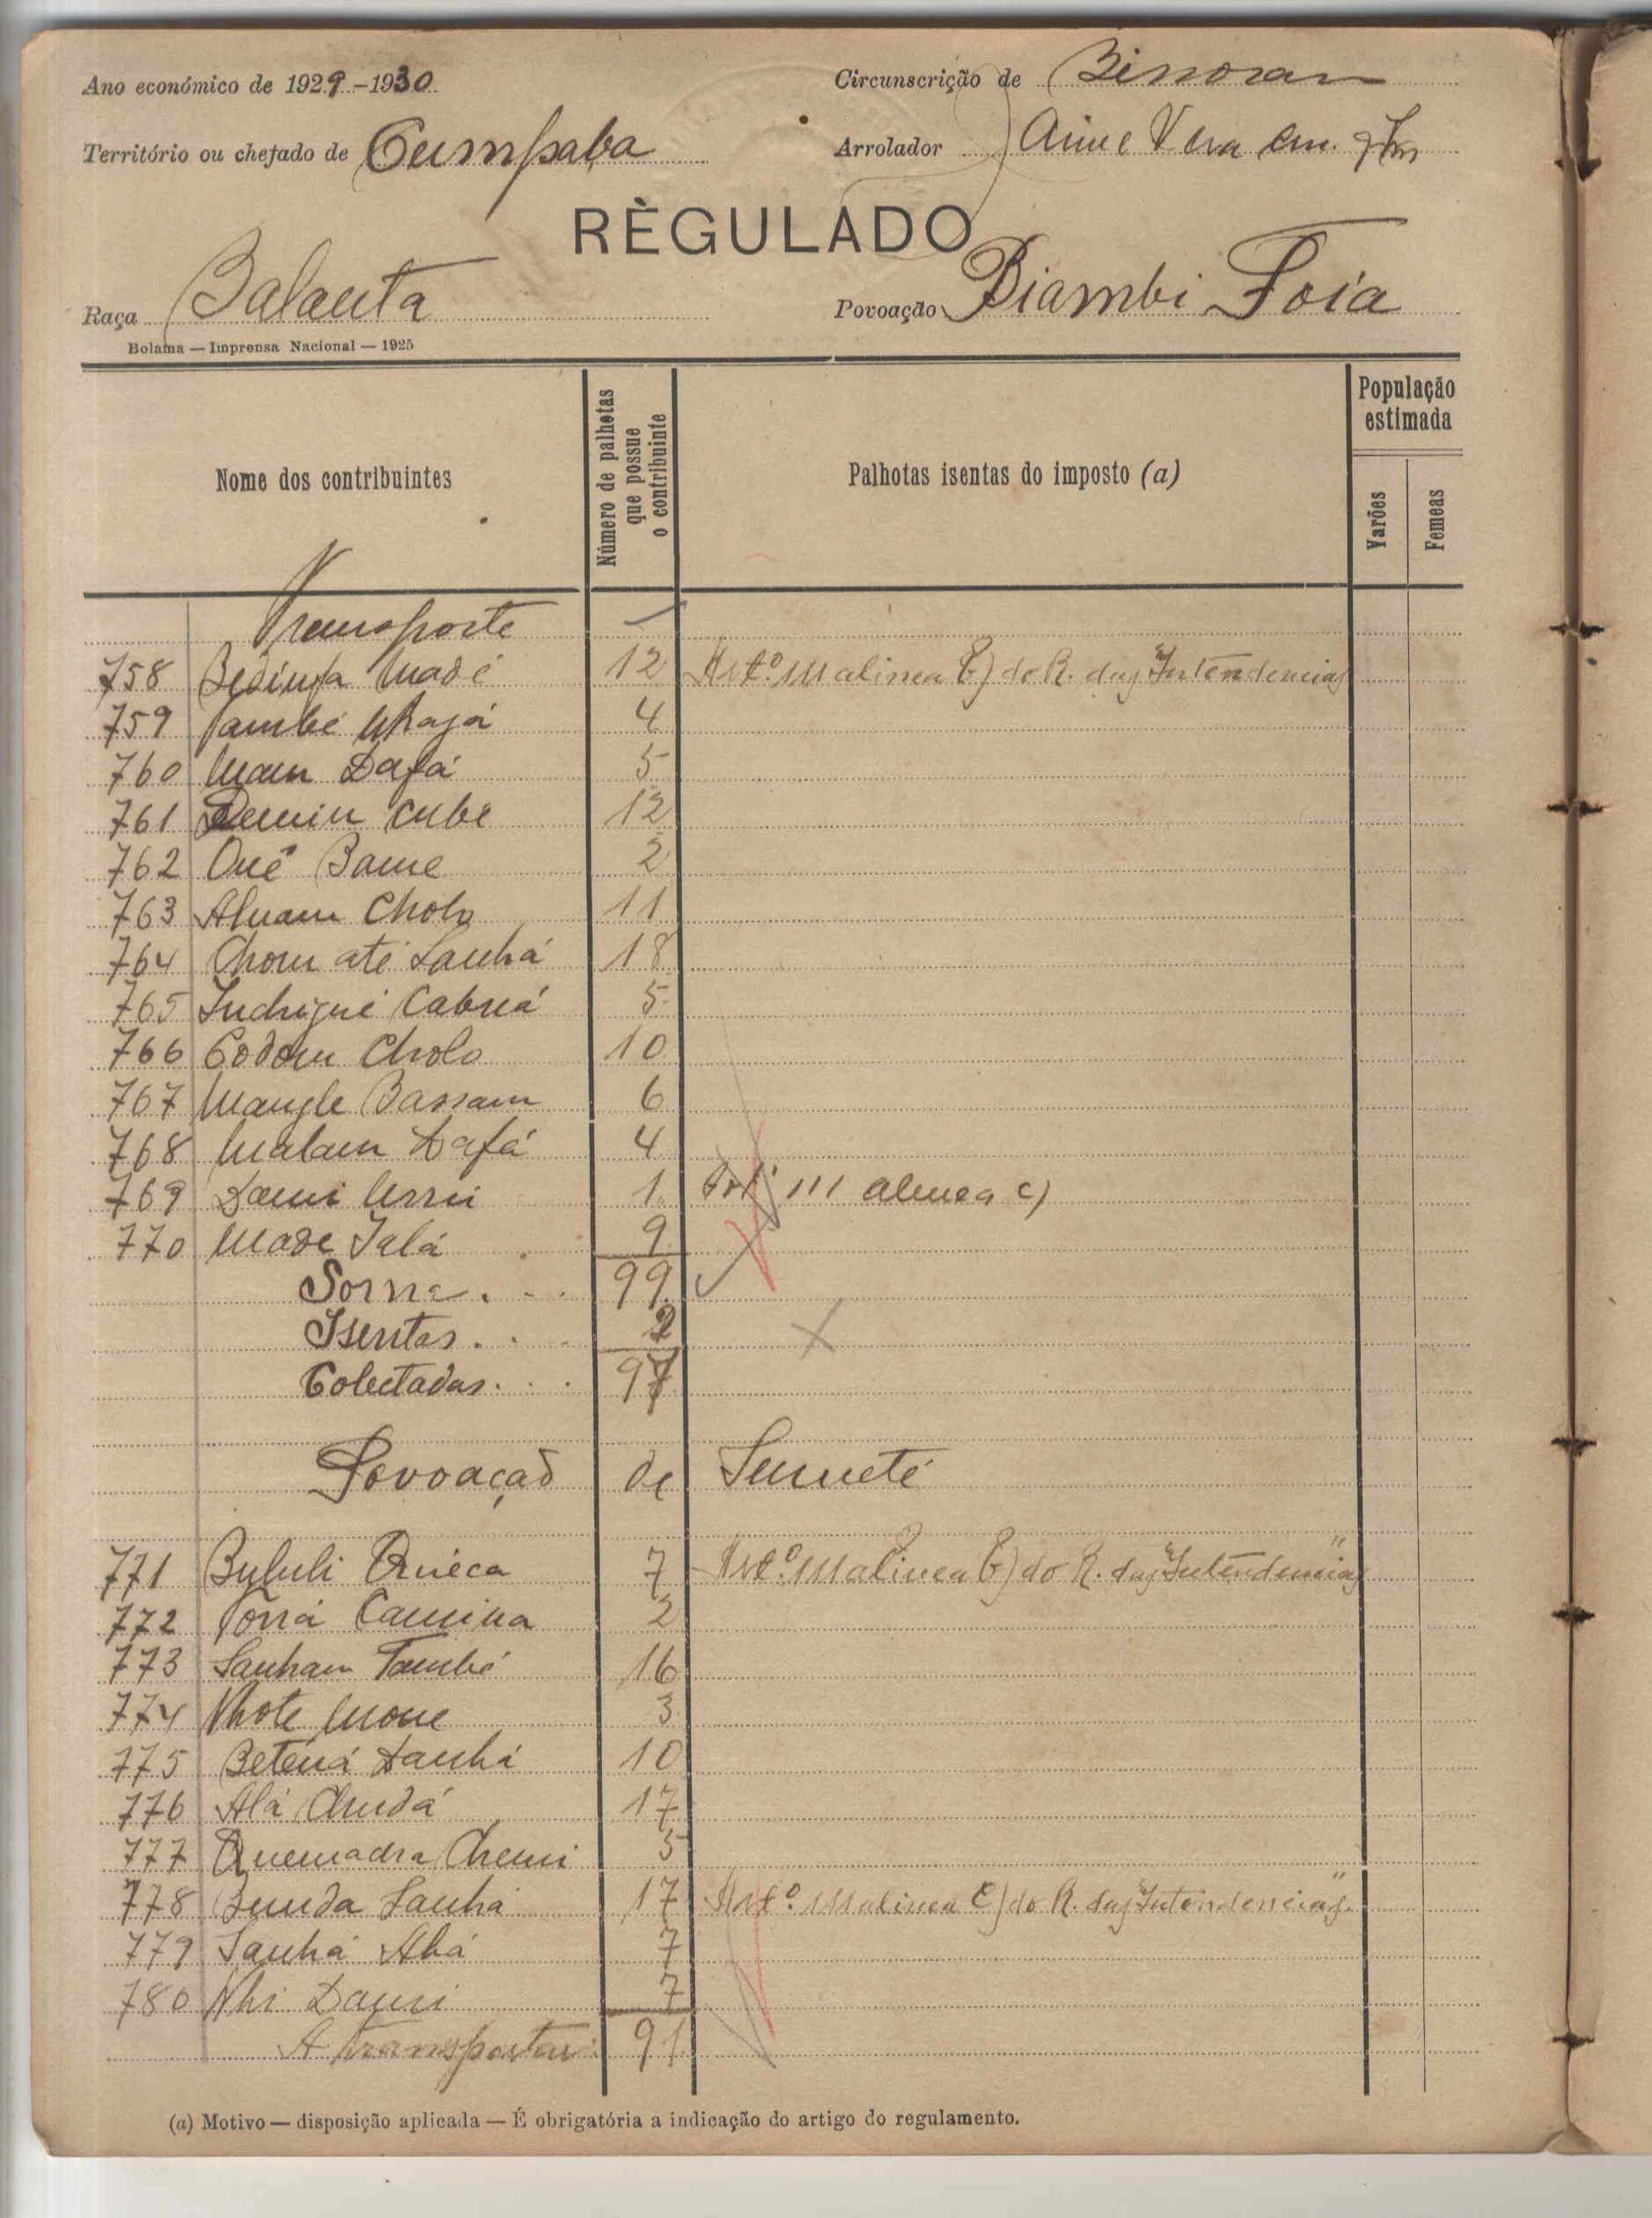 Ano económico de 1929-1930
Circunscrição de Bissoram
Território ou chefado de Cumpaba
Arrolador
RÈGULADO
Raça Balanta
Povoação Biambi Foia
Bolama — Imprensa Nacional — 1925
Nome dos contribuintes
Número de palhotas que possue o contribuinte
Palhotas isentas do imposto (a)
População estimada
Varões
Femeas
Transporte —
758 Bedinga Madé 12 Artº. 111 alinea b) do R. das "Intendencias
759 També 4
760 Mam Dafá 5
761 Cube 12
762 Oué Bame 2
763 Aluam Cholo 11
764 Chom até Sanhá 18
765 Indrigué Cabuá 5
766 Codom Cholo 10
767 Mangle Bassam 6
768 Malam Dafá 4
769 Dami 1 Artº 111 alinea c)
770 Made Ialá 9
Soma . . . 99
Isentas . . . 2
Colectadas . . . 97
Povoação de
771 Bululi Quieca 7 Artº. 111 alinea b) do R. das "Intendencias"
772 Torrá Camina 2
773 Sanham També 16
774 Nhote Mone 3
775 Betená Sanhá 10
776 Alá Chudá 17
777 Quemadra Chemi 5
778 Bunda Sanhá 17 Artº. 111 alinea c) do R. das "Intendencias".
779 Sanhá Abá 7
780 Nhi Dami 7
A transportar 91
(a) Motivo — disposição aplicada — É obrigatória a indicação do artigo do regulamento.